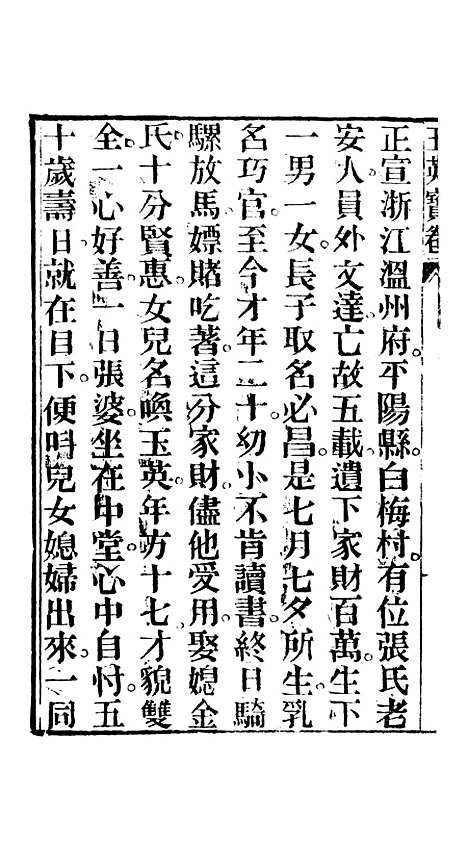 玉英寶卷
正宣浙江溫州府。平陽縣。白梅村。有位張氏老
安人。員外文達。亡故五載。遺下家財百萬。生下
一男一女。長子取名必昌。是七月七夕所生。乳
名巧官。至今才年二十。幼小不肯讀書。終日騎
騾放馬。嫖賭吃著。這分家財。儘他受用。娶媳金
氏。十分賢惠。女兒名喚玉英。年方十七。才貌雙
全。一心好善。一日張婆。坐在中堂。心中自忖。五
十歲壽日。就在目下。便呌兒女媳婦出來。一同